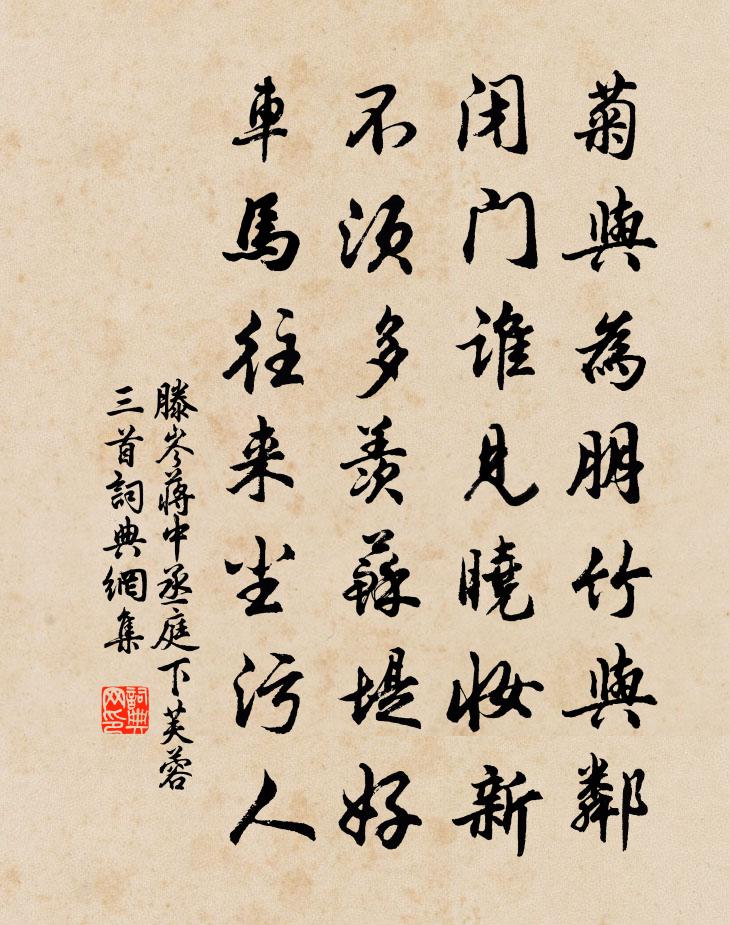 菊與為朋竹與鄰
闭门誰見曉妝新
不须多羨蘇堤好
車馬往来尘污人
滕岑蔣中丞庭下芙蓉
三首詞典網集
詞典
网印